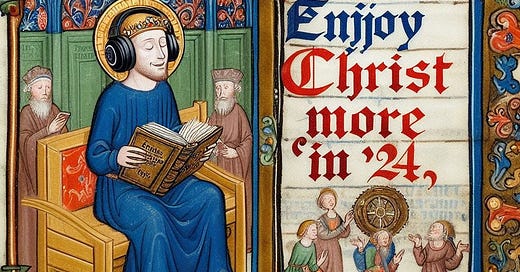 Enjjoy
Christ
more
‘in ’24,